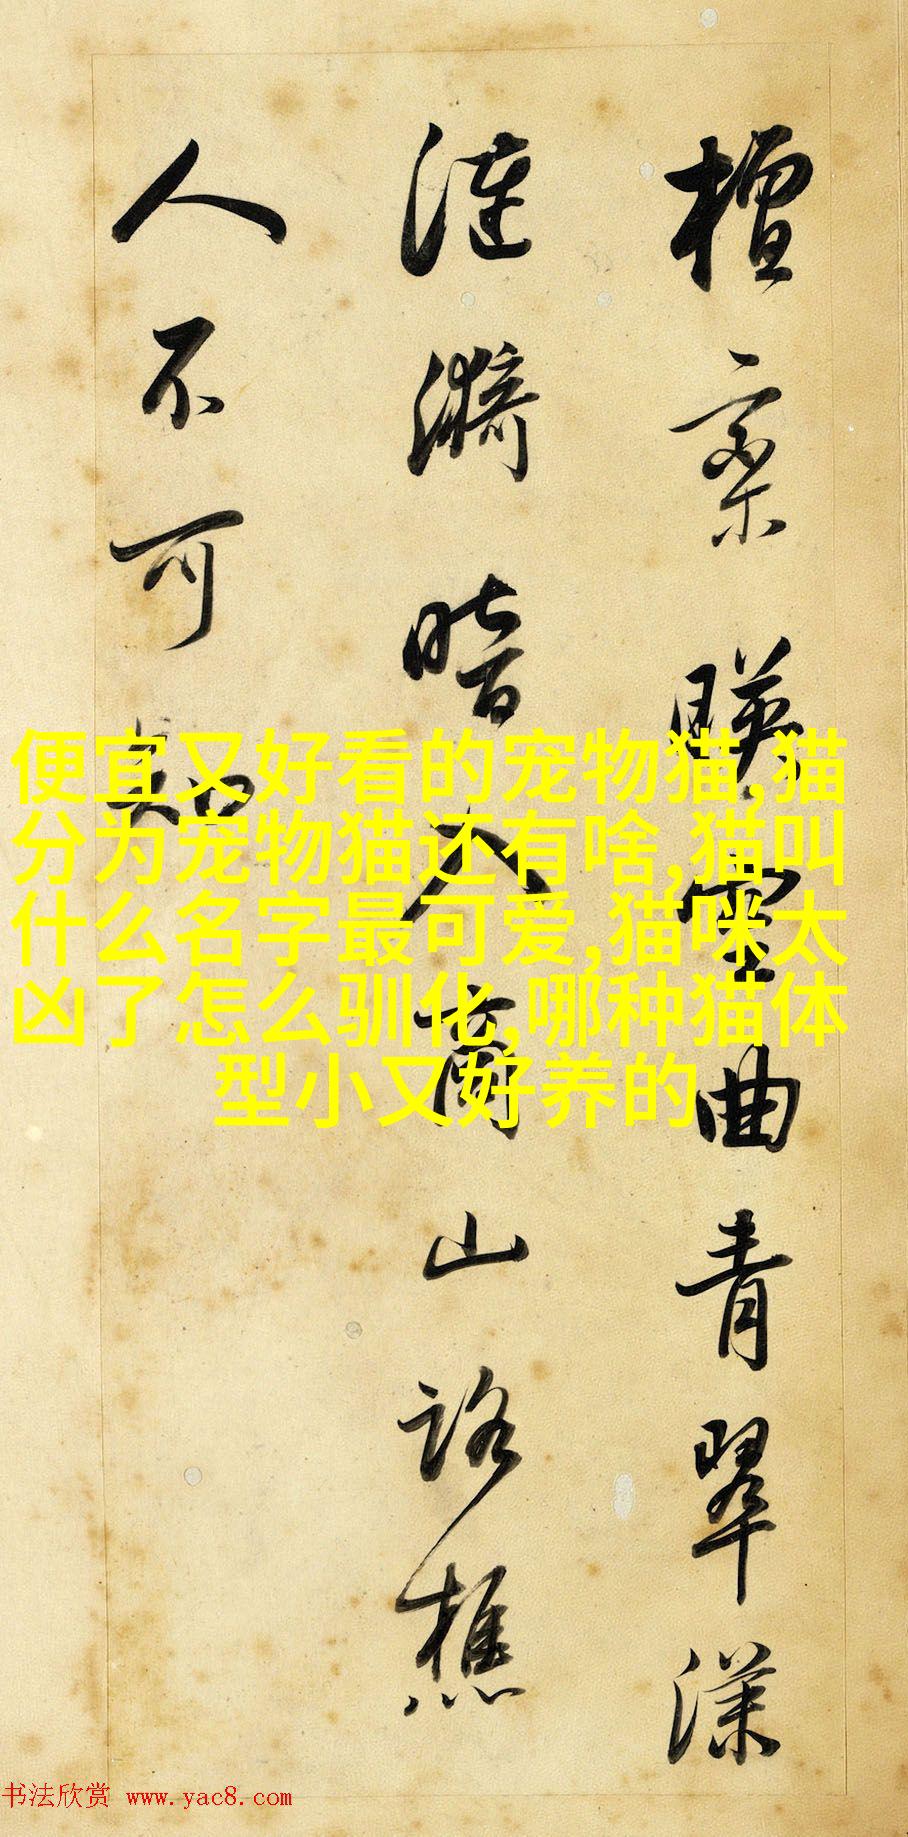 檀欒暎空曲青翠漾
漣漪暗入商山路樵
人不可知
便宜又好看的宠物猫,猫
分为宠物猫还有啥,猫叫
什么名字最可爱,猫咪太
凶了怎么驯化,哪种猫体
型小又好养的
书法欣赏 www.yac8.com